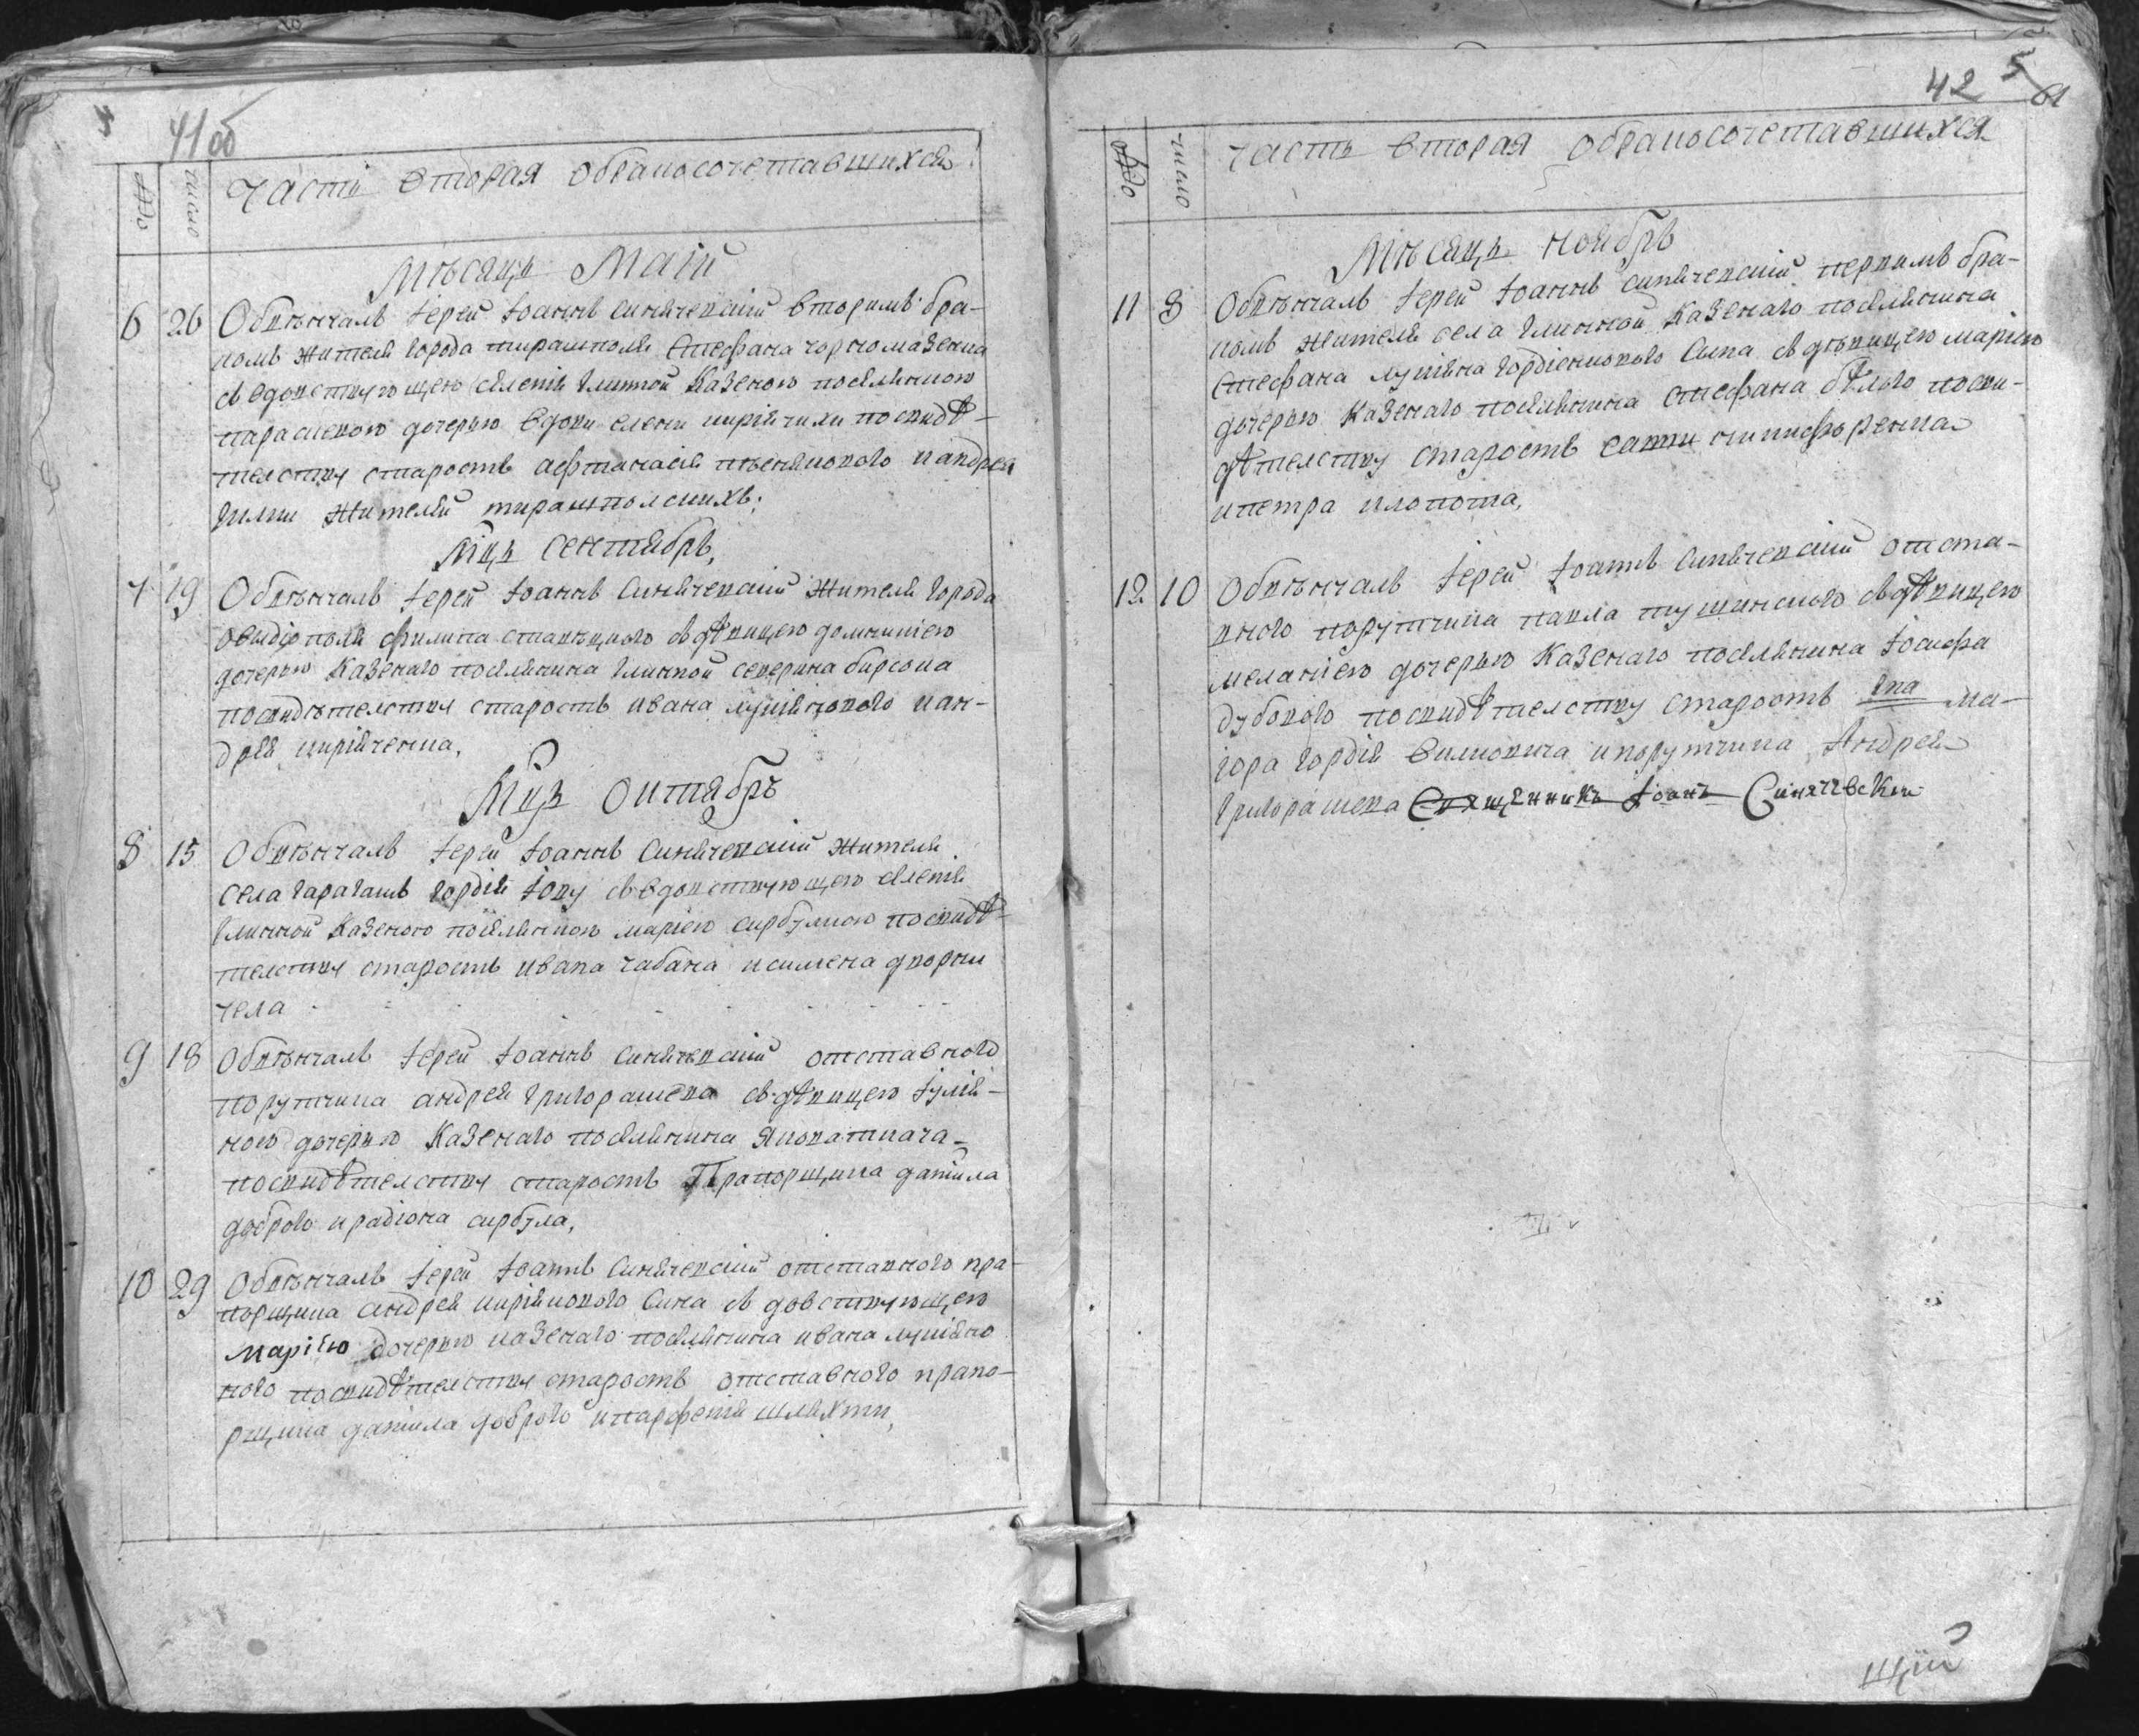 41 об
№
число
Часть вторая обракосочетавшихся
Мѣсяцъ Маій
6 26 Обвѣнчалъ Іерей Іоаннъ Синячевскій вторимъ бра-
комъ жителя города тирашполя Стефана чорномазенка
съ вдовствующею селенія глинной Казеною посѣлянкою
параскевою дочерью вдови елени кирїячихи по свидѣ-
телству старостъ афтанасія пѣсняковаго и андрея
жителей тирашполскихъ:
Мцъ Сентябръ,
7 19 Обвѣнчалъ Іерей Іоаннъ Синячевскій жителя города
овидіополя филипа съ дѣвицею домникіею
дочерью Казенаго посѣлянина глинной северина бирсона
по свидѣтелству старостъ ивана лукіяноваго и ан-
дрея кирїяченка,
Мцъ Октябръ
8 15 Обвѣнчалъ Іерей Іоаннъ Синячевскій жителя
села карагашъ гордія Іову съ вдовствующею селенія
глинной Казеною посѣлянкою маріею сирбулкою по свидѣ-
телству старостъ ивана чабана и симена дворни
чела
9 18 Обвѣнчалъ Іерей Іоаннъ Синячевскій отставного
порутчика андрея григорашева съ дѣвицею Іулія-
ною дочерью Казенаго посѣлянина якова ткача
по свидѣтелству старостъ Прапорщика данїила
доброго и радіона сирбула,
10 29 Обвѣнчалъ Іерей Іоаннъ Синячевскій отставного пра-
порщика андрея кирїяковаго Сина съ довствующею
маріею дочерью казенаго посѣлянина ивана лукіяно
ваго по свидѣтелству старостъ отставного прапо-
рщика данїила доброго и парфенія шляхти,
42 5
№
число
часть вторая обракосочетавшихся
Мѣсяцъ ноябръ
11 8 Обвѣнчалъ Іерей Іоаннъ Синячевскій первимъ бра-
комъ жителя села глинной Казенаго посѣлянина
Стефана лукіяна гордіенковаго Сина съ дѣвицею маріею
дочерью Казенаго посѣлянина стефана бѣлого по сви-
дѣтелству старостъ савы никифоренка
и петра клопота,
12 10 Обвѣнчалъ Іерей Іоаннъ Синячевскій отста-
вного порутчика павла тушинского съ дѣвицею
меланіею дочерью Казенаго посѣлянина Іосифа
дубового по свидѣтелству старостъ гна ма-
іора гордія вилковича и порутчика Андрея
григорашева Священникъ Іоанъ Синячевски
щій